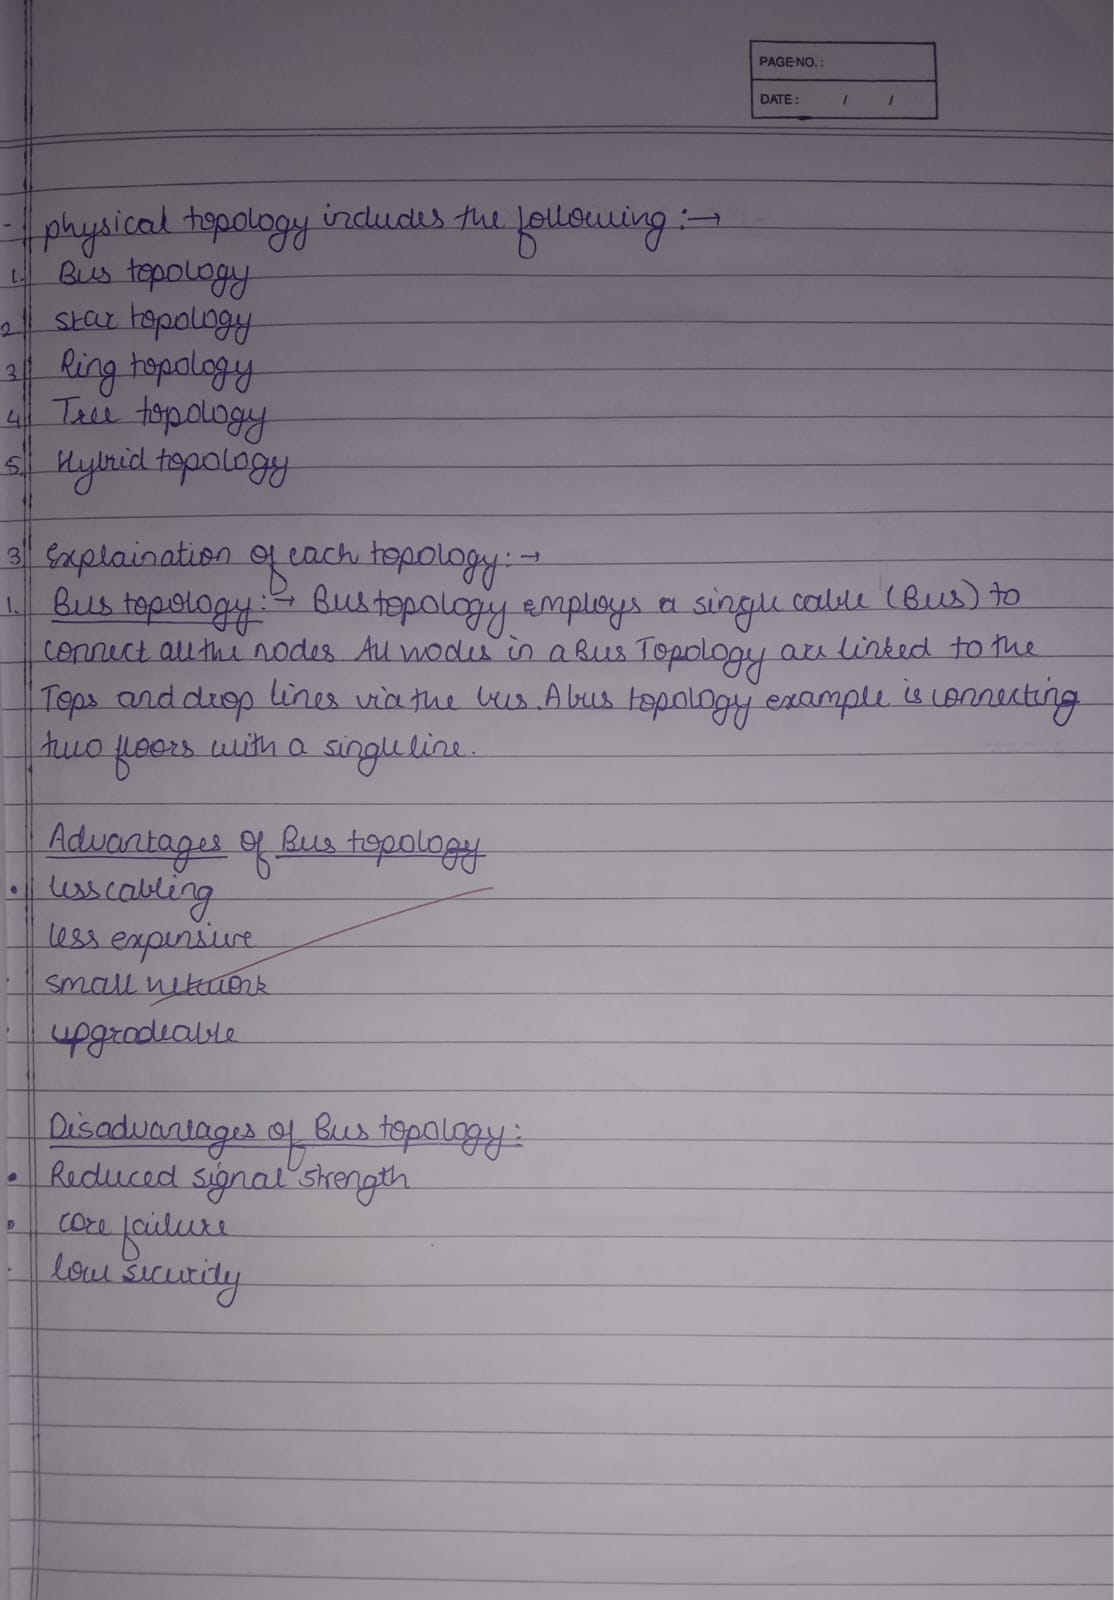 PAGE NO.:
DATE: / /
- physical topology includes the following :→
1. Bus topology
2 star topology
3 Ring topology
4 Tree topology
5. Hybrid topology
3 Explaination of each topology:→
1. Bus topology:→ Bus topology employs a single cable (Bus) to
connect all the nodes All nodes in a Bus Topology are linked to the
Tops and drop lines via the bus. A bus topology example is connecting
two floors with a single line.
Advantages of Bus topology
• less cabling
less expensive
· small network
· upgradeable
Disadvantages of Bus topology:
• Reduced signal strength
• core failure
· low security